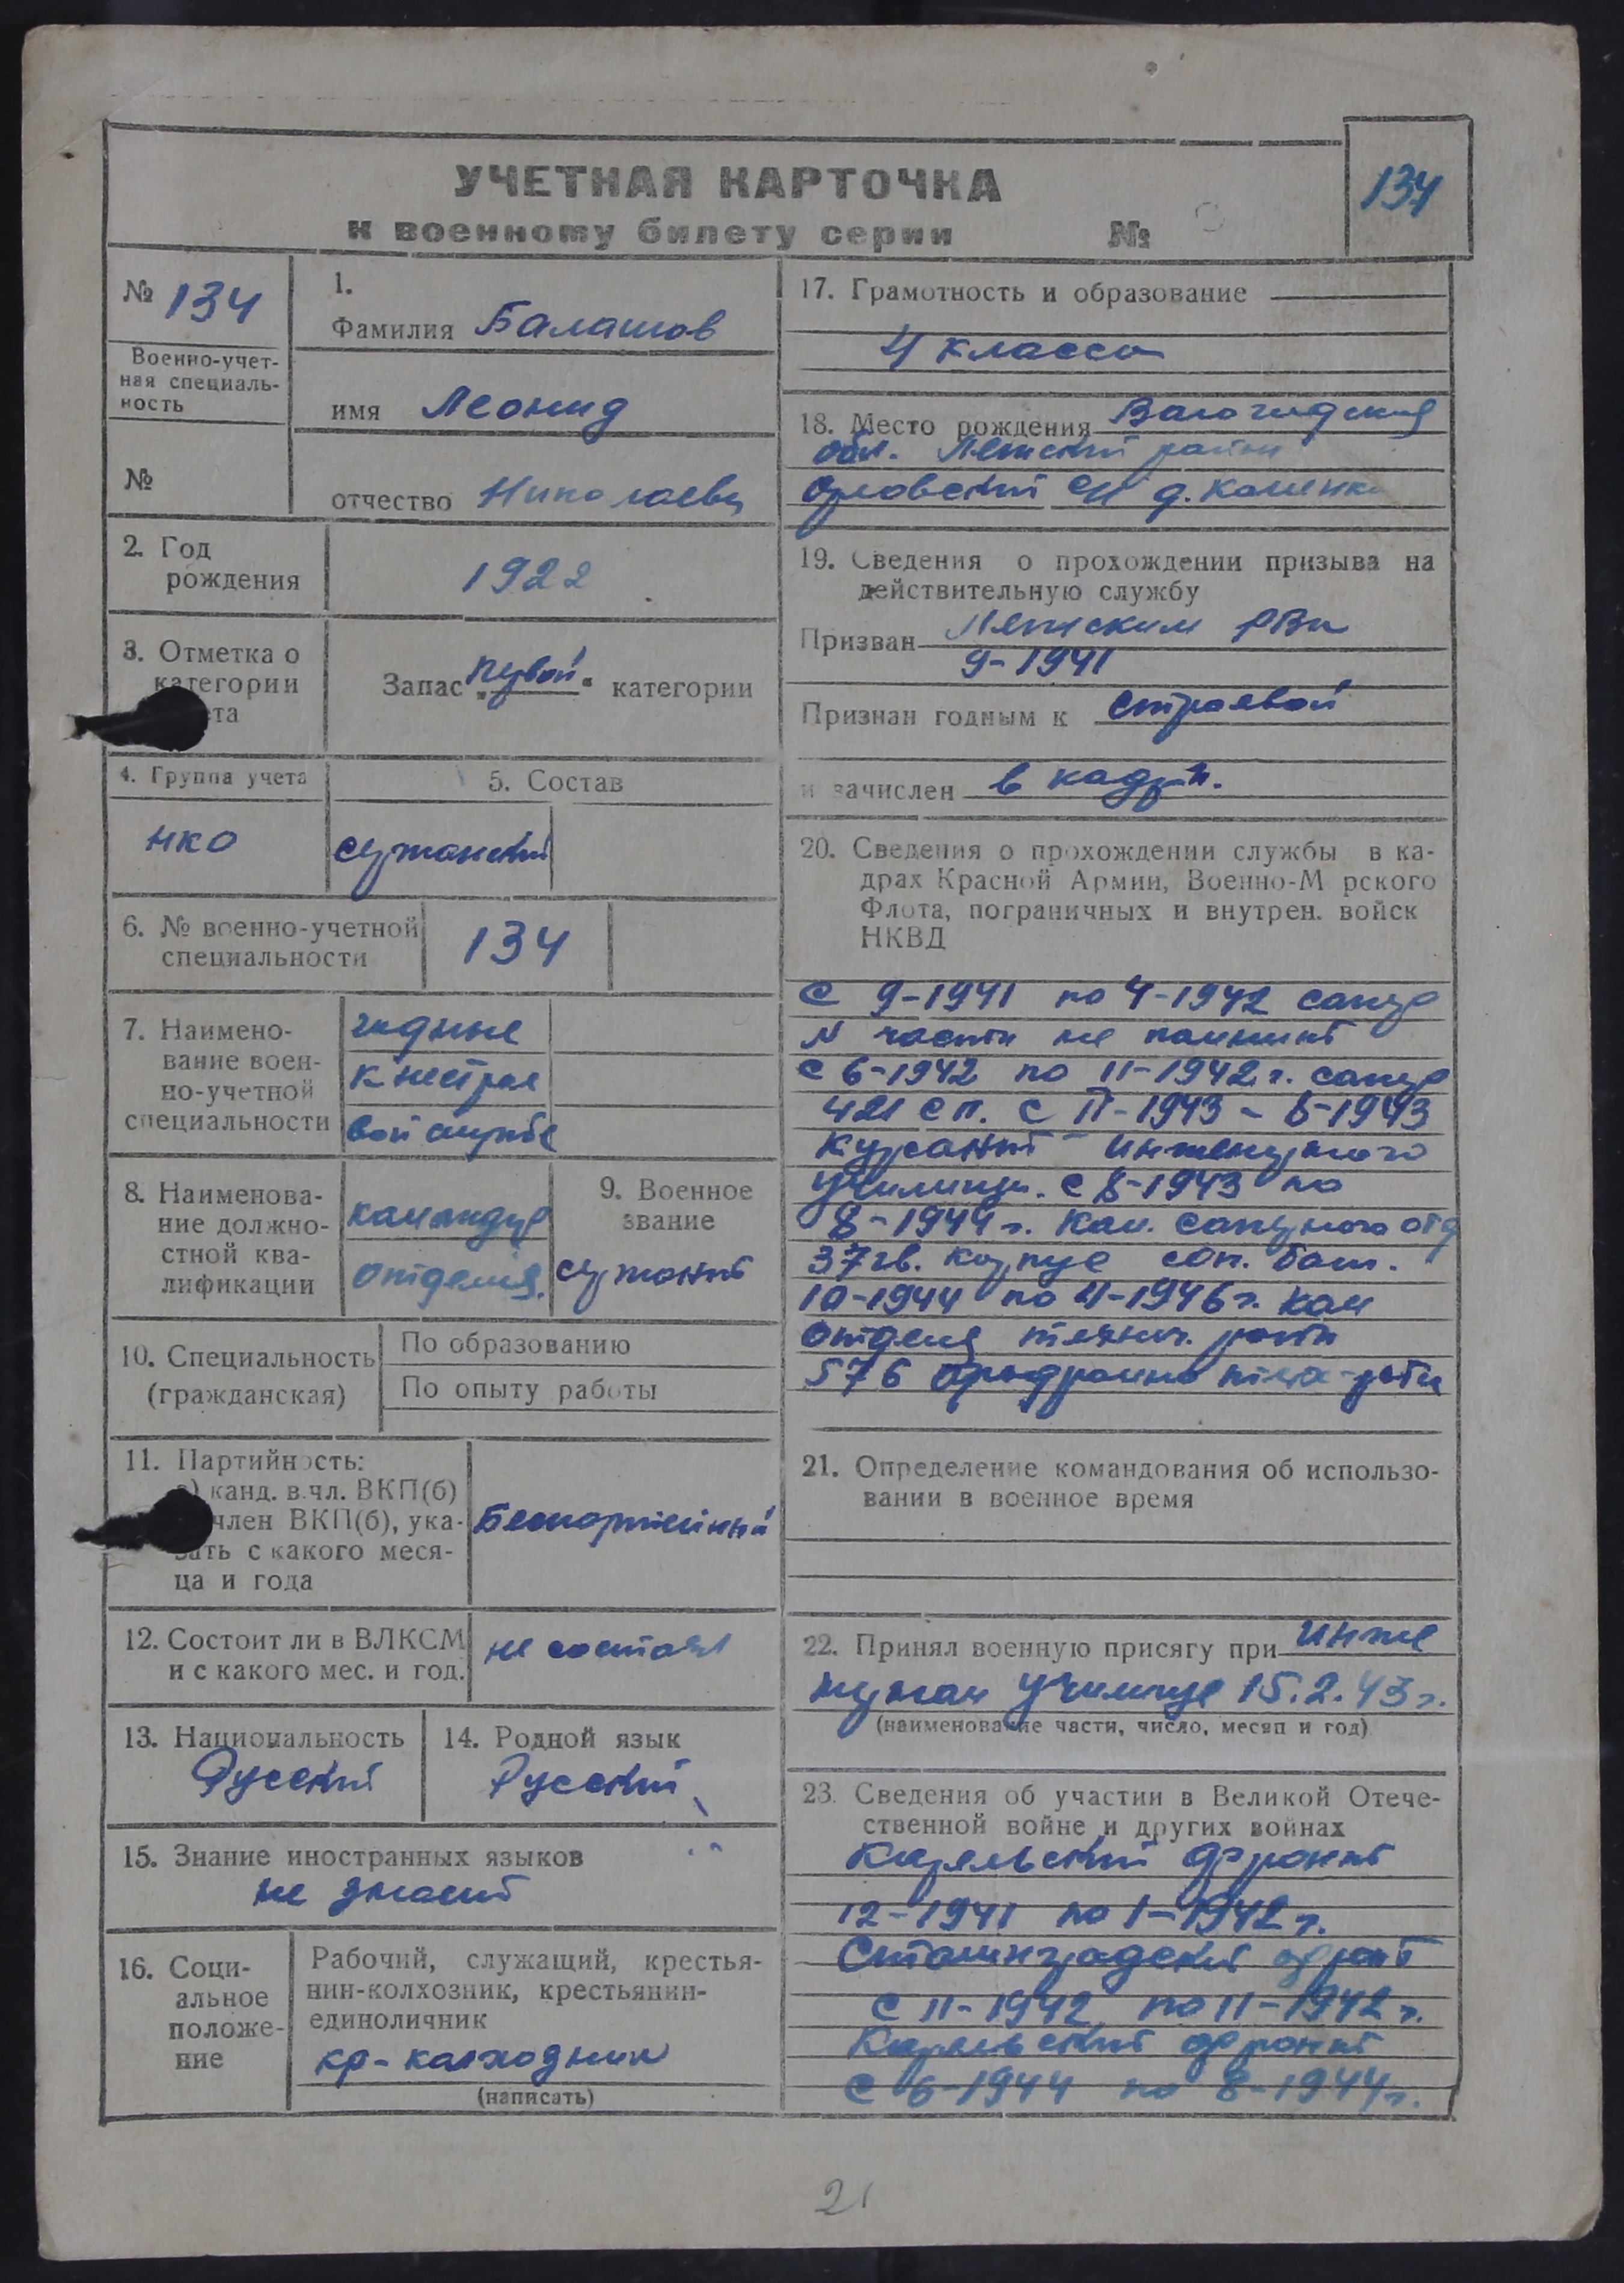 УЧЕТНАЯ КАРТОЧКА
к военному билету серии №
134
№ 134
Военно-учет-
ная специаль-
ность
№
1.
Фамилия Балашов
имя Леонид
отчество Николаевич
2. Год
рождения
1922
3. Отметка о
категории
та
Запас „первой“ категории
4. Группа учета
НКО
5. Состав
сержанский
6. № военно-учетной
специальности
134
7. Наимено-
вание воен-
но-учетной
специальности
годные
к нестрое
вой службе
8. Наименова-
ние должно-
стной ква-
лификации
командир
отделен.
9. Военное
звание
сержант
10. Специальность
(гражданская)
По образованию
По опыту работы
11. Партийность:
а) канд. в чл. ВКП(б)
член ВКП(б), ука-
зать с какого меся-
ца и года
Беспартийный
12. Состоит ли в ВЛКСМ
и с какого мес. и год.
не состоял
13. Национальность
Русский
14. Родной язык
Русский
15. Знание иностранных языков
не знает
16. Соци-
альное
положе-
ние
Рабочий, служащий, крестья-
нин-колхозник, крестьянин-
единоличник
кр-колхозник
(написать)
17. Грамотность и образование
4 класса
18. Место рождения Вологодская
обл. район
с/с д. Каменка
19. Сведения о прохождении призыва на
действительную службу
Призван РВк
9-1941
Признан годным к строевой
и зачислен в кадры.
20. Сведения о прохождении службы в ка-
драх Красной Армии, Военно-М рского
Флота, пограничных и внутрен. войск
НКВД
С 9-1941 по 4-1942 сапер
N части не помнит
С 6-1942 по 11-1942 г. сапер
421 сп. С II-1943 - 8-1943
курсант инженерного
училища. С 8-1943 по
8-1944 г. Ком. саперного отд
37 гв. корпус сап. бат.
10-1944 по 4-1946 г. Ком
отделен технич. роты
576 аэродромно тех-роты
21. Определение командования об использо-
вании в военное время
22. Принял военную присягу при инже
нерном училище 15.2.43 г.
(наименование части, число, месяц и год)
23. Сведения об участии в Великой Отече-
ственной войне и других войнах
Карельский фронт
12-1941 по 1-1942 г.
Сталинградский фронт
С 11-1942 по 11-1942 г.
Карельский фронт
С 6-1944 по 8-1944 г.
21